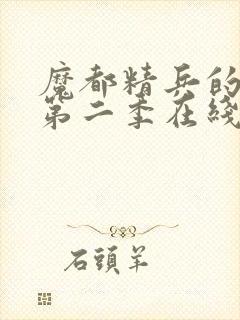 魔都精兵的
第二季在线
石头羊